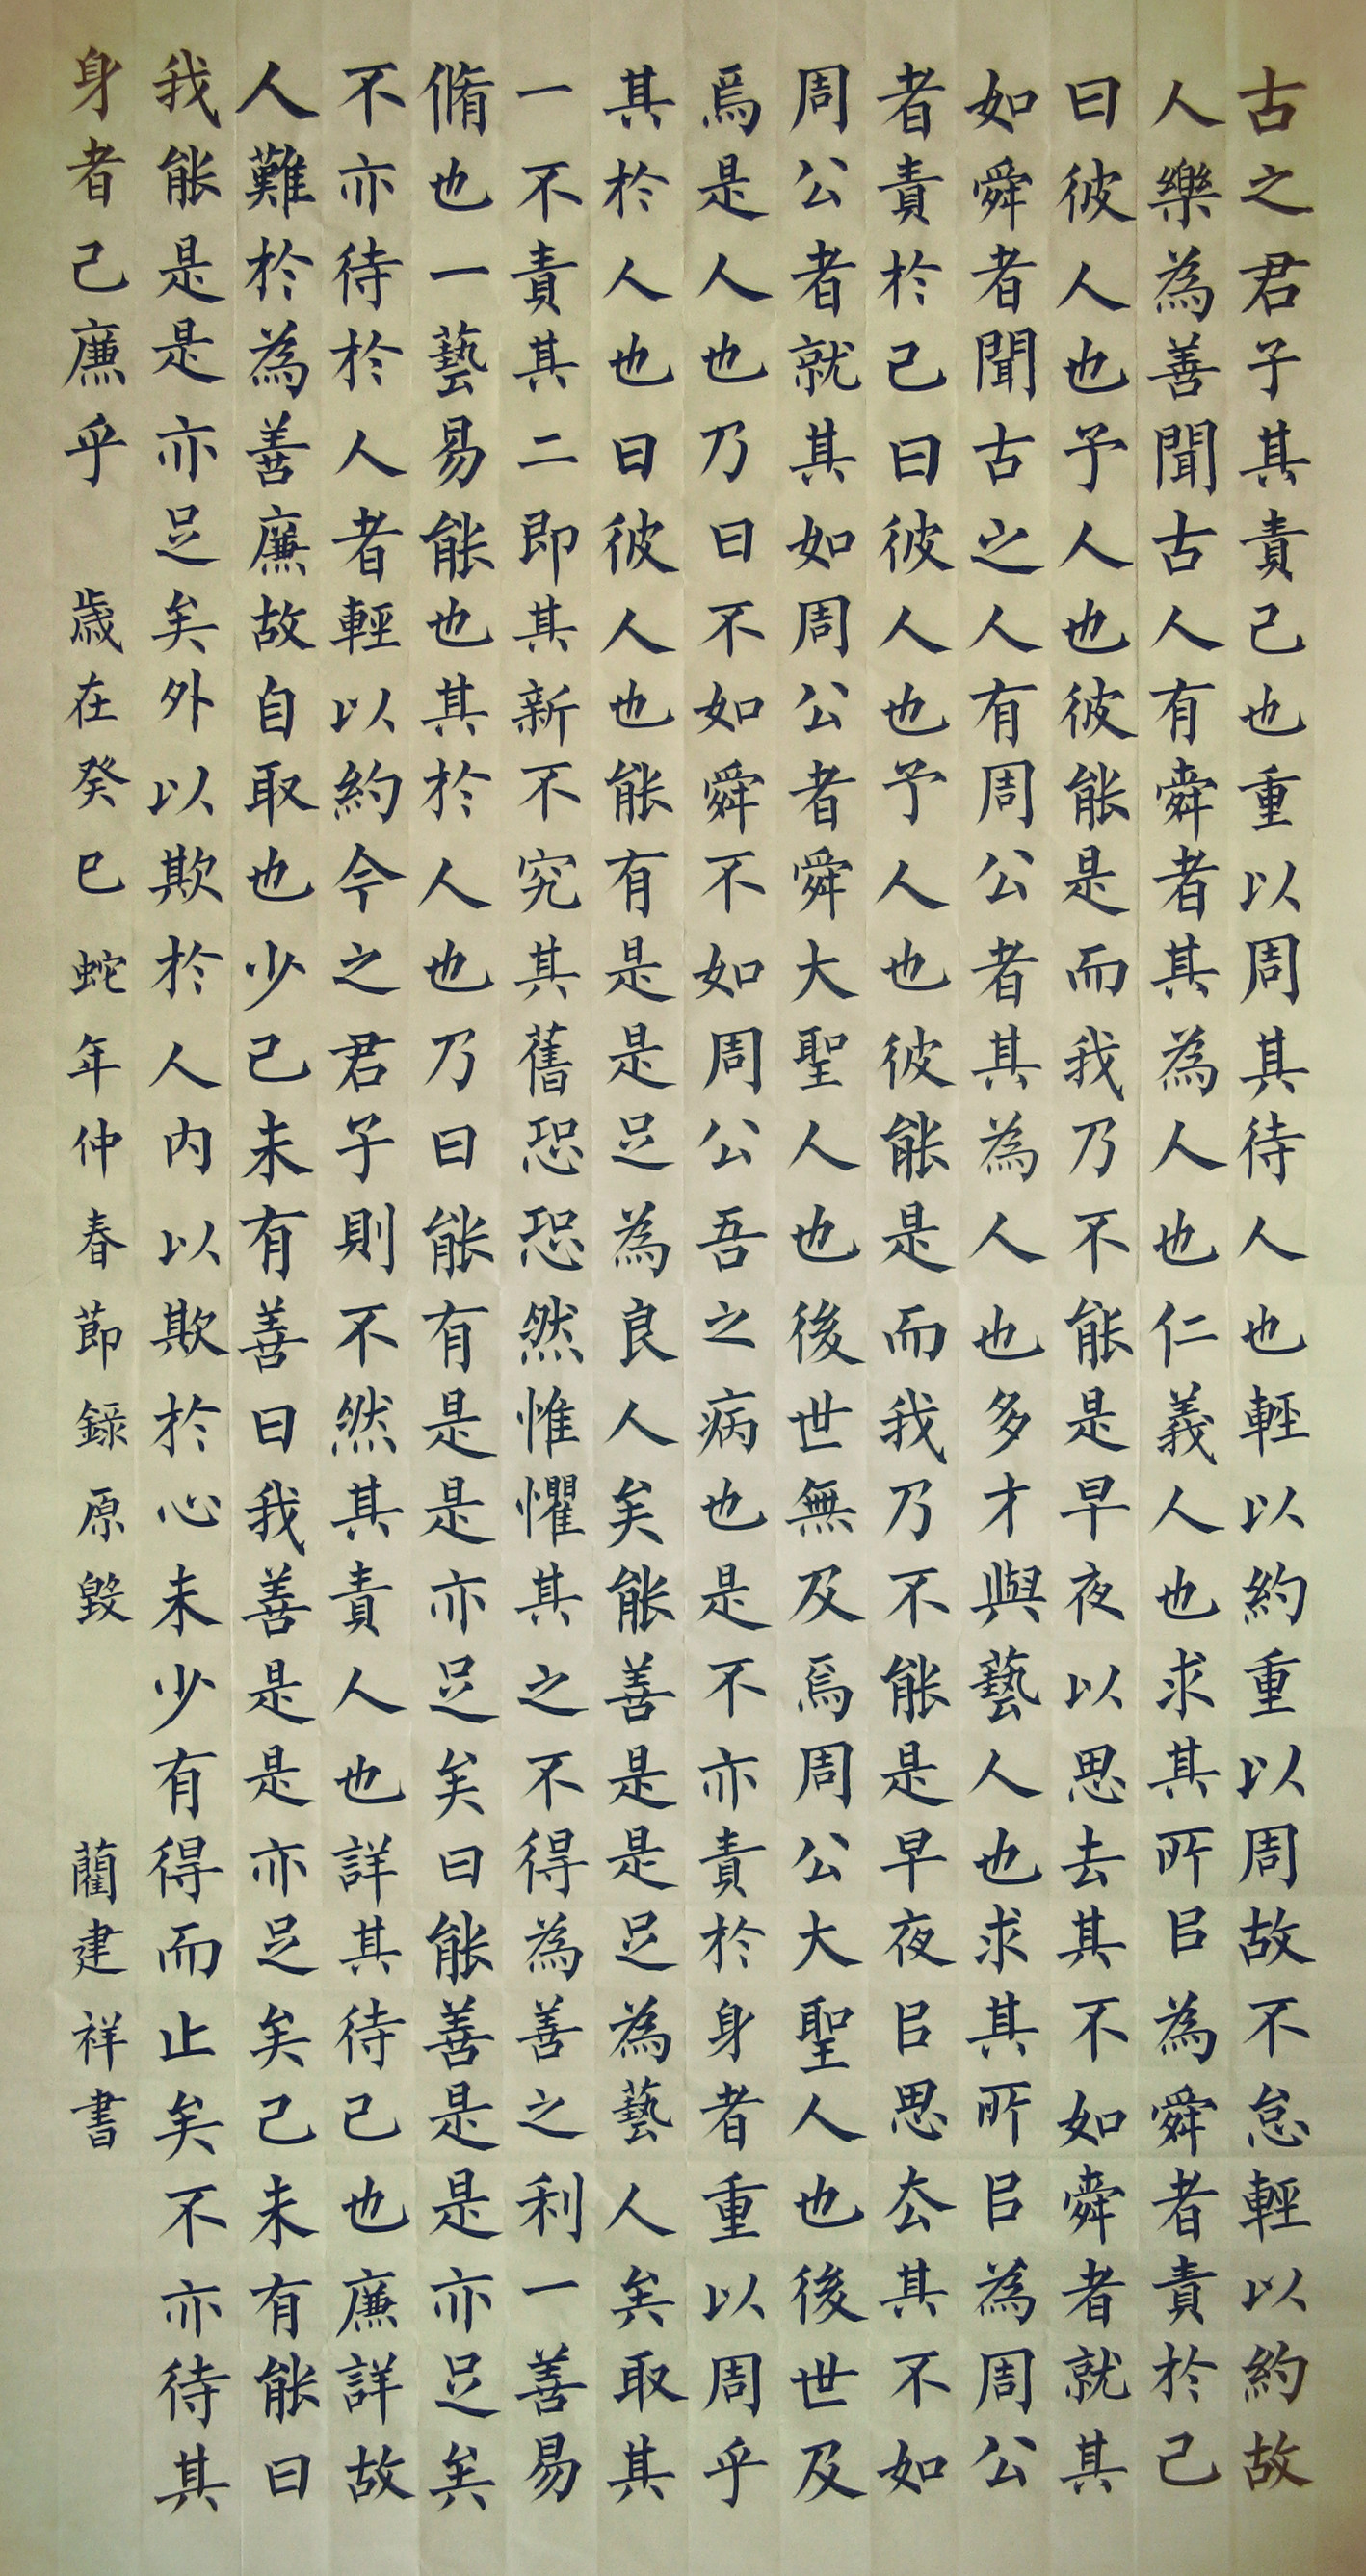 古之君子其責己也重以周其待人也輕以約重以周故不怠輕以約故
人樂為善聞古人有舜者其為人也仁義人也求其所㠯為舜者責於己
曰彼人也予人也彼能是而我乃不能是早夜以思去其不如舜者就其
如舜者聞古之人有周公者其為人也多才與藝人也求其所㠯為周公
者責於己曰彼人也予人也彼能是而我乃不能是早夜㠯思厺其不如
周公者就其如周公者舜大聖人也後世無及焉周公大聖人也後世及
焉是人也乃曰不如舜不如周公吾之病也是不亦責於身者重以周乎
其於人也曰彼人也能有是是足為良人矣能善是是足為藝人矣取其
一不責其二即其新不究其舊恐恐然惟懼其之不得為善之利一善易
脩也一藝易能也其於人也乃曰能有是是亦足矣曰能善是是亦足矣
不亦待於人者輕以約今之君子則不然其責人也詳其待己也廉詳故
人難於為善廉故自取也少己未有善曰我善是是亦足矣己未有能曰
我能是是亦足矣外以欺於人內以欺於心未少有得而止矣不亦待其
身者己廉乎 歲在癸巳蛇年仲春節錄原毀 藺建祥書